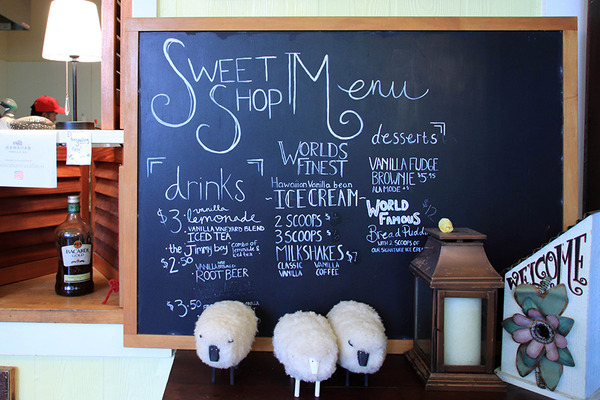 SWEET
SHOP
Menu
drinks
$3. vanilla
lemonade
VANILLA VINEYARD BLEND
ICED TEA
the Jimmy boy
combo of
lemonade &
iced tea
$2.50
ROOT BEER
$3.50
WORLDS
FINEST
Hawaiian Vanilla bean
-ICE CREAM-
2 SCOOPS
3 SCOOPS
MILKSHAKES $7
CLASSIC VANILLA
VANILLA COFFEE
desserts
VANILLA FUDGE
BROWNIE $5.95
ALA MODE
WORLD
FAMOUS
Bread Pudd
WITH 2 SCOOPS OF
OUR SIGNATURE ICE
BACARDI
GOLD
WELCOME